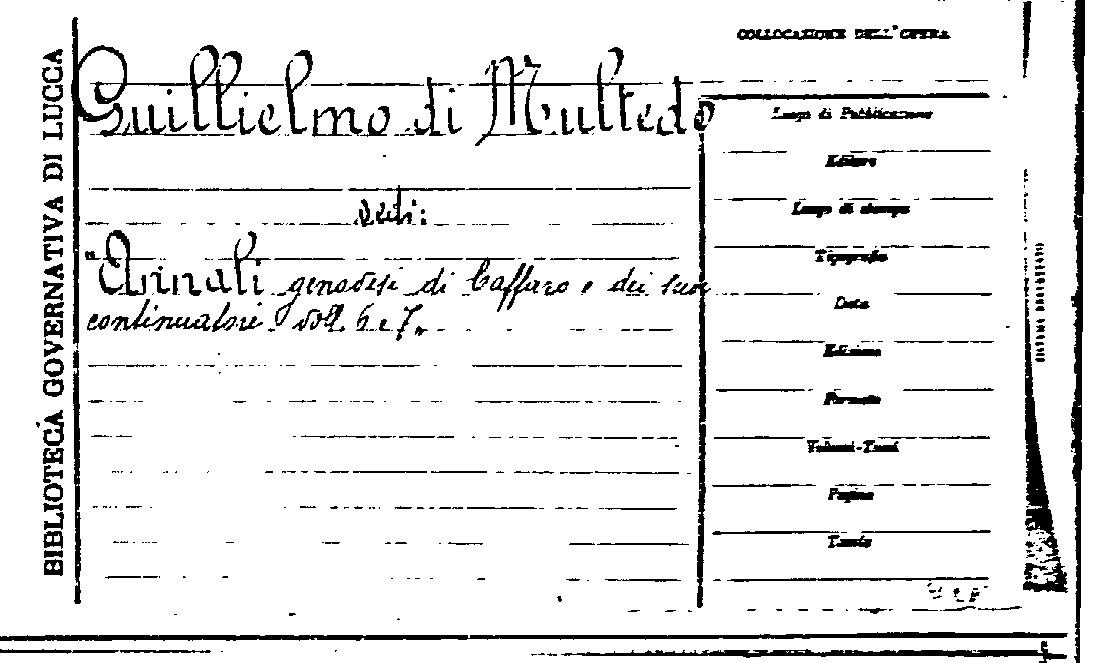 BIBLIOTECA GOVERNATIVA DI LUCCA
COLLOCAZIONE DELL'OPERA
Guillielmo di Multedo
vedi:
"Annali genovesi di Caffaro e dei suoi
continuatori voll. 6 e 7"
Luogo di Pubblicazione
Editore
Luogo di stampa
Tipografia
Data
Edizione
Formato
Volumi-Tomi
Pagine
Tavole